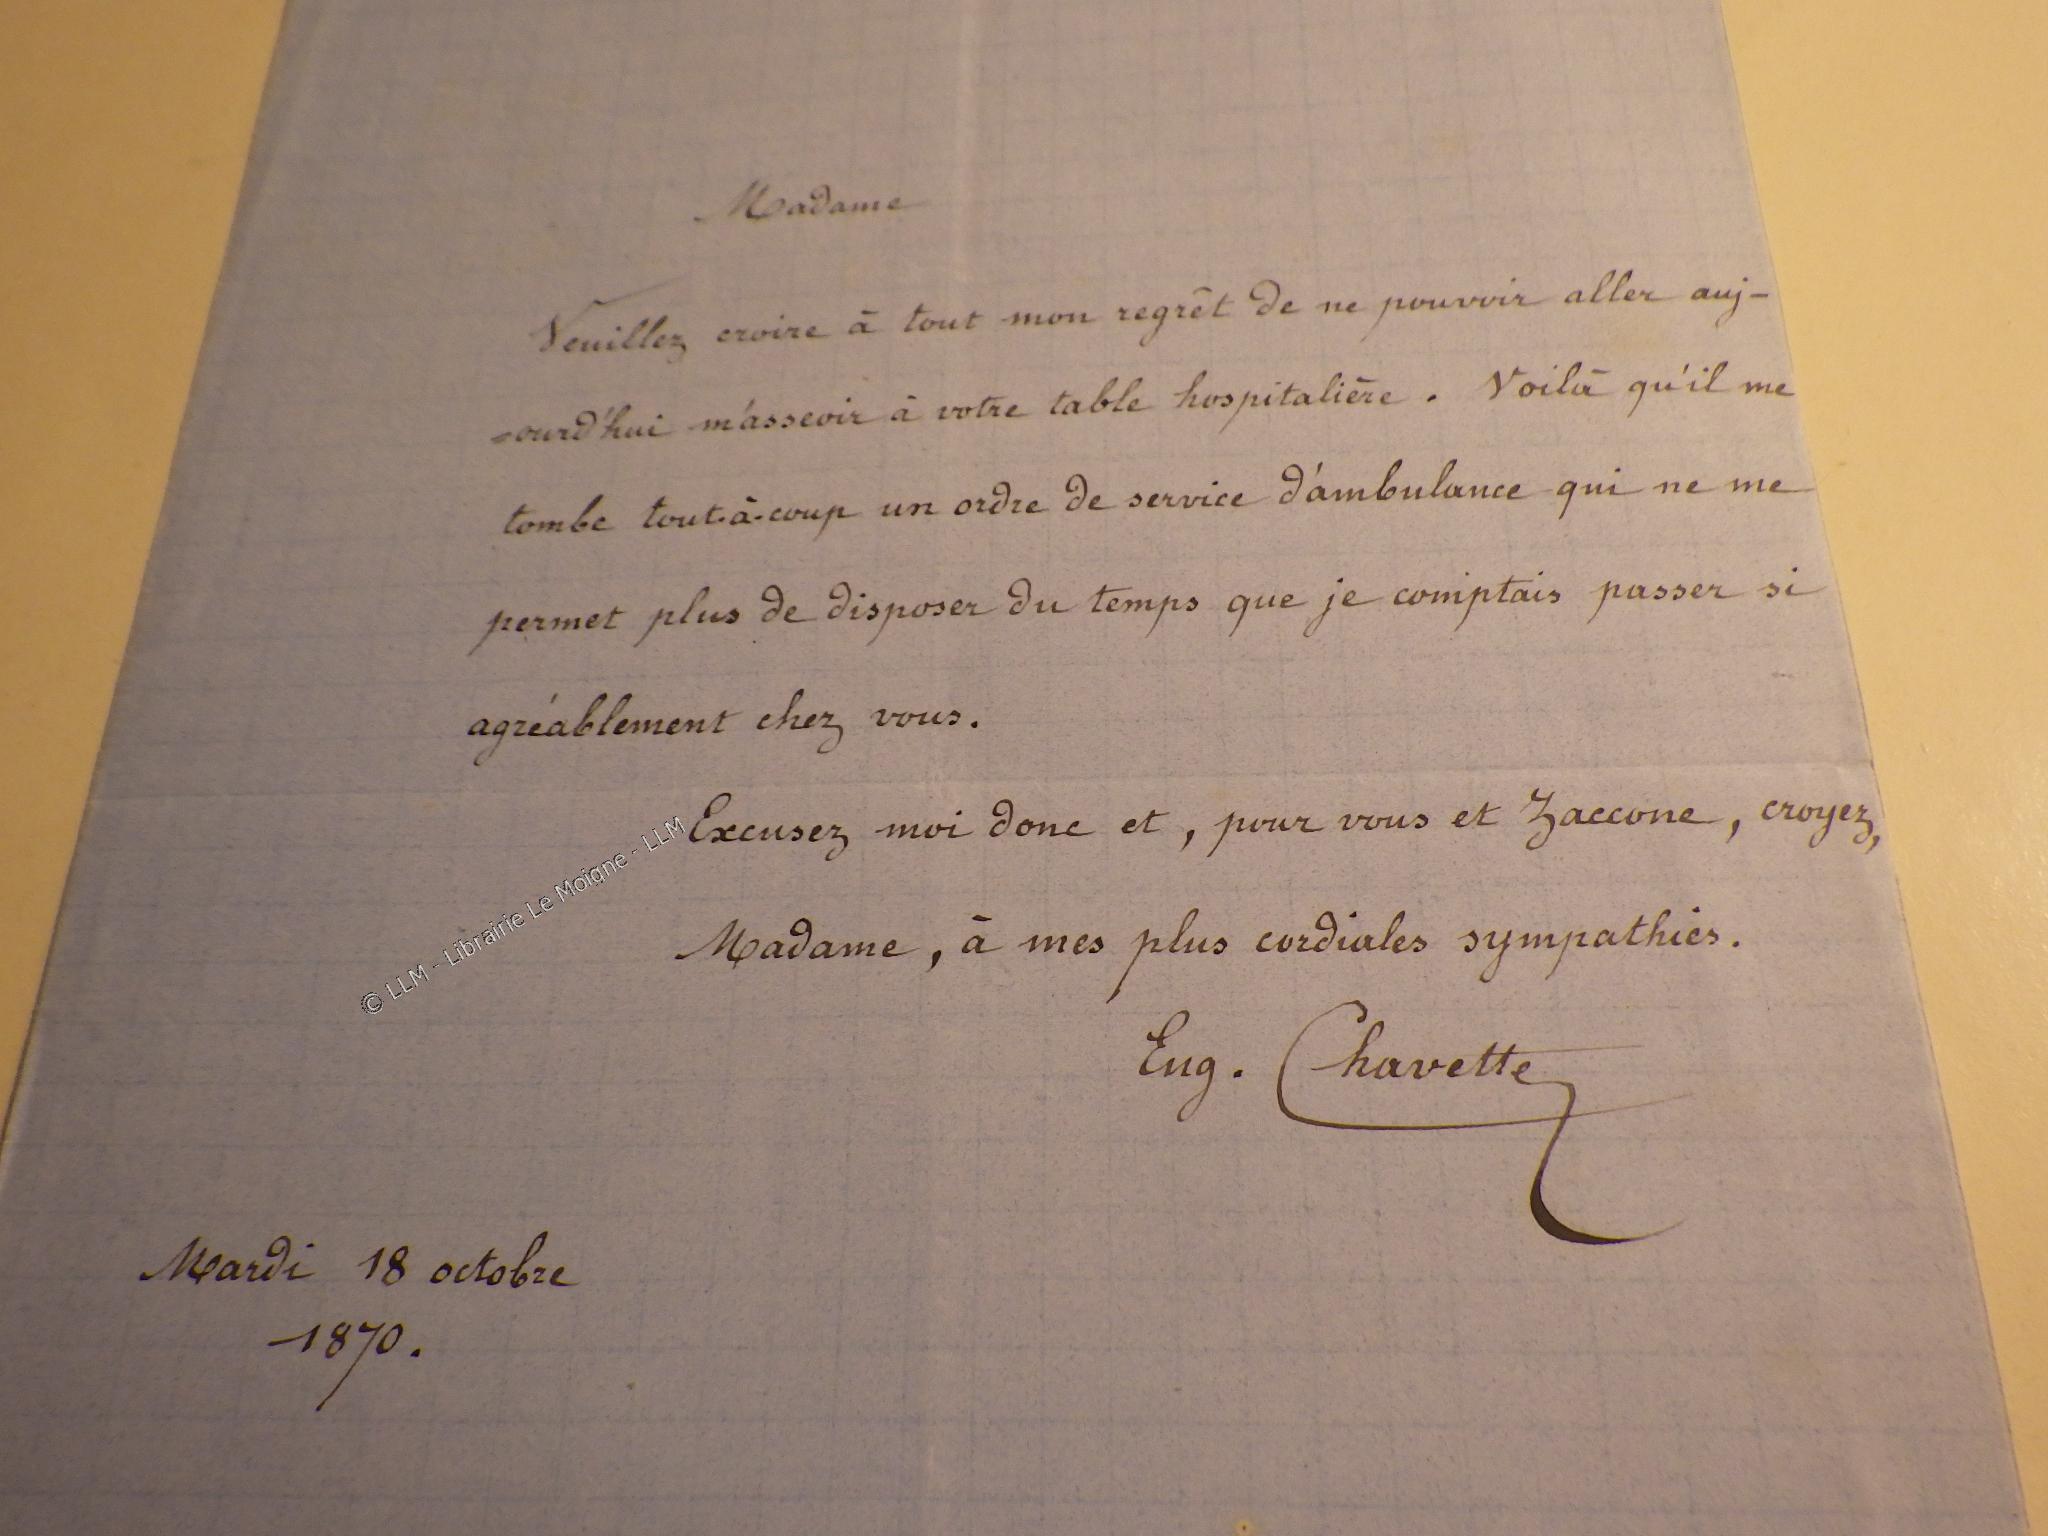 Madame
Veuillez croire à tout mon regrêt de ne pouvoir aller auj-
-ourd'hui m'asseoir à votre table hospitalière. Voilà qu'il me
tombe tout-à-coup un ordre de service d'ambulance qui ne me
permet plus de disposer du temps que je comptais passer si
agréablement chez vous.
Excusez moi donc et, pour vous et Zaccone, croyez,
Madame, à mes plus cordiales sympathies.
Eug. Chavette
Mardi 18 octobre
1870.
© LLM - Librairie Le Moigne - LLM